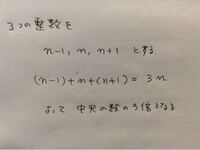 3つの整数を
n-1, n, n+1 とする
(n-1)+n+(n+1) = 3n
よって 中央の数の3倍となる